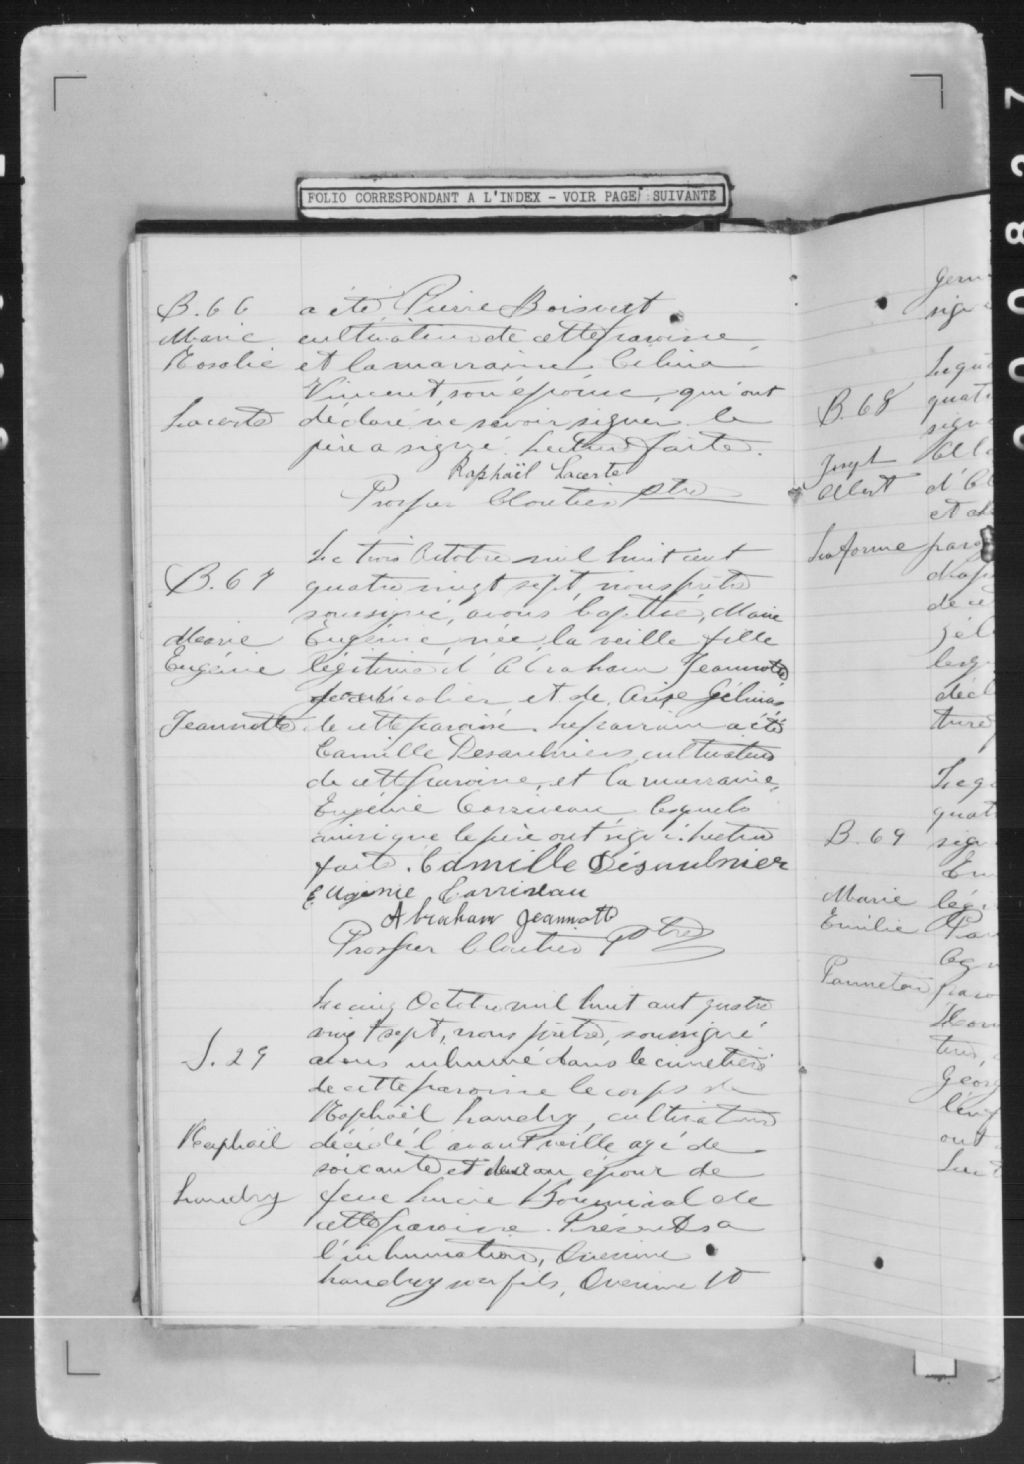 FOLIO CORRESPONDANT A L'INDEX - VOIR PAGE SUIVANTE
B. 66
Marie
Rosalie
Lacerte
a été Pierre Boisvert
cultivateur de cette paroisse
et la marraine Celina
Vincent, son épouse, qui ont
déclaré ne savoir signer. le
père a signé. Lecture faite.
Raphaël Lacerte
Prosper Cloutier Ptre
B. 67
Marie
Eugénie
Jeannotte
Le trois Octobre mil huit cent
quatre vingt sept, nous prêtre
soussigné, avons baptisé, Marie
Eugénie, née la veille fille
légitime d'Abraham Jeannotte
et de Gélinas
de cette paroisse. Le parrain a été
Camille Desaulniers, cultivateur
de cette paroisse, et la marraine,
Eugénie lesquels
ainsi que le père ont signé. Lecture
faite. Camille Désaulnier
Eugenie Carrineau
Abraham Jeannotte
Prosper Cloutier Ptre
S. 29
Raphaël
Landry
Le cinq Octobre mil huit cent quatre
vingt sept, nous prêtre, soussigné
avons inhumé dans le cimetière
de cette paroisse le corps de
Raphaël Landry, cultivateur
décédé l'avant veille agé de
soixante et deux an époux de
feue Lucie de
cette paroisse. Présents a
l'inhumation,
Landry son fils,
B. 68
Joseph
Albert
Laforme
B. 69
Marie
Emilie
Panneton
00827